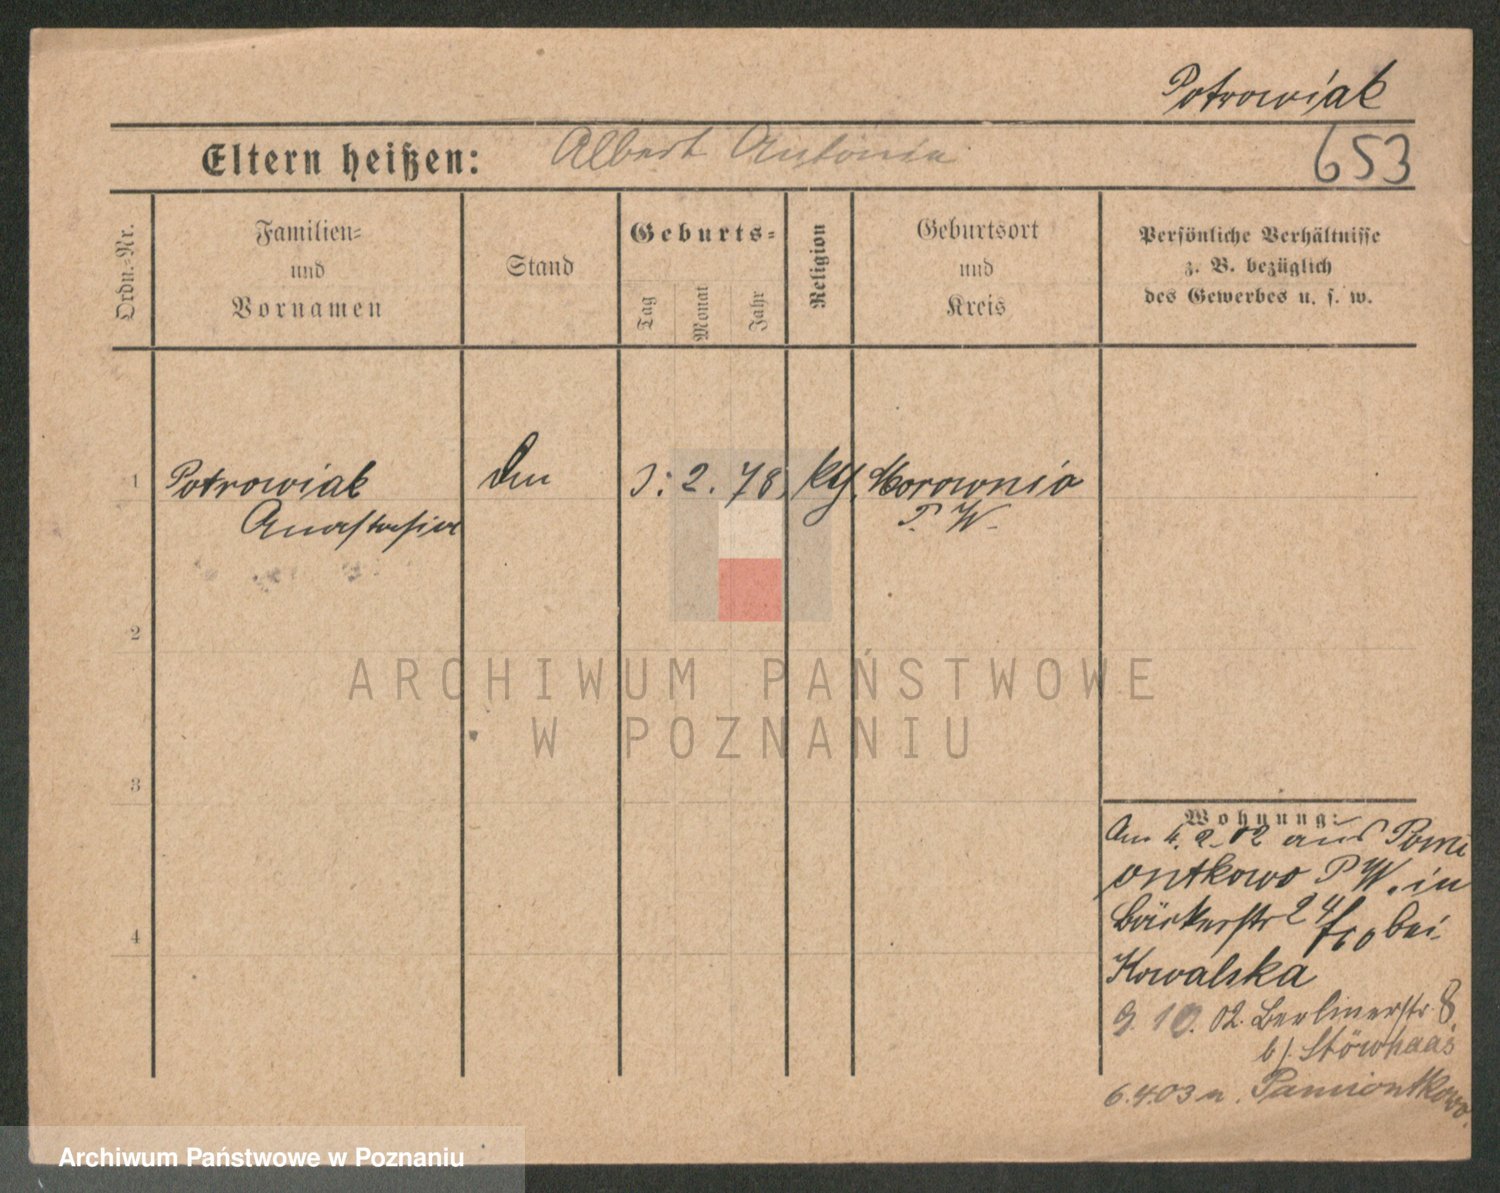 Potrowiak
Eltern heißen: Albert Antonia
653
Ordn.-Nr.
Familien-
und
Vornamen
Stand
Geburts-
Tag
Monat
Jahr
Religion
Geburtsort
und
Kreis
Persönliche Verhältnisse
z. B. bezüglich
des Gewerbes u. s. w.
1 Potrowiak 2. 78 Morownia
Anastasia P. W.
2
3
4
ARCHIWUM PAŃSTWOWE
W POZNANIU
Wohnung:
Am 4. 2. 02 aus Pomi
ontkowo P W. in
Bäckerstr 24 bei
Kowalska
10. 02. Berlinerstr. 8.
b/ Stöwhaas
6.4.03 n. Pamiontkowo.
Archiwum Państwowe w Poznaniu